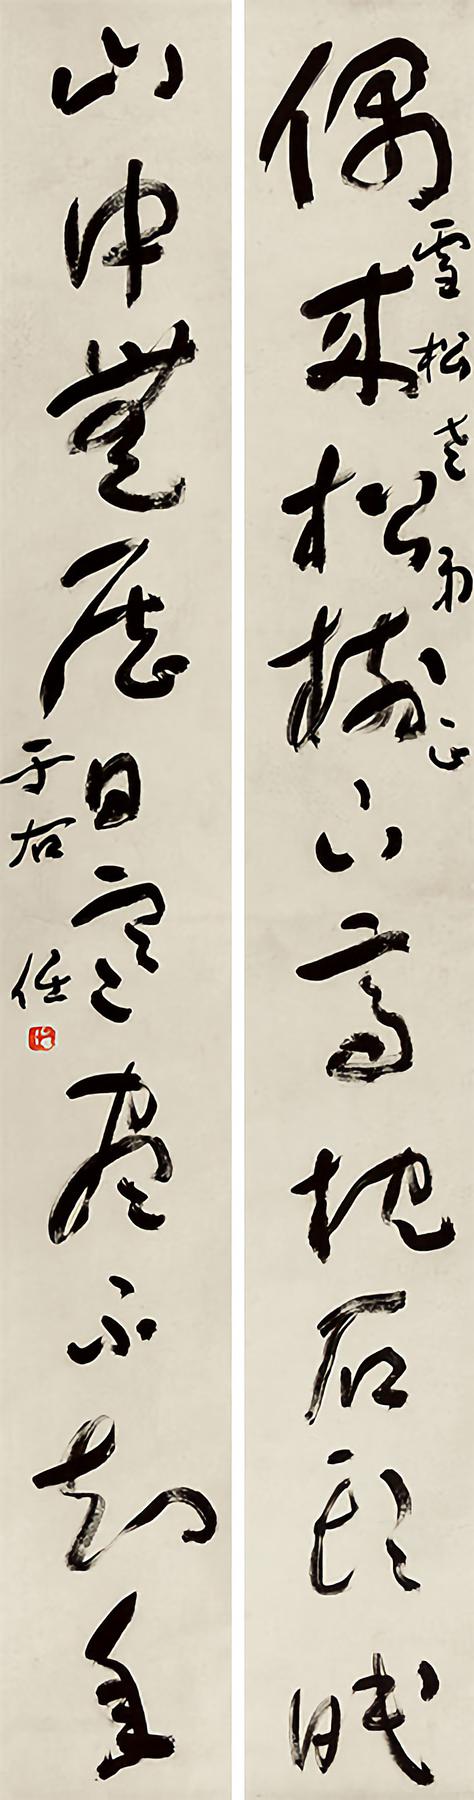 偶来松树下高枕石头眠
雪松老弟正
山中无历日寒尽不知年
于右任